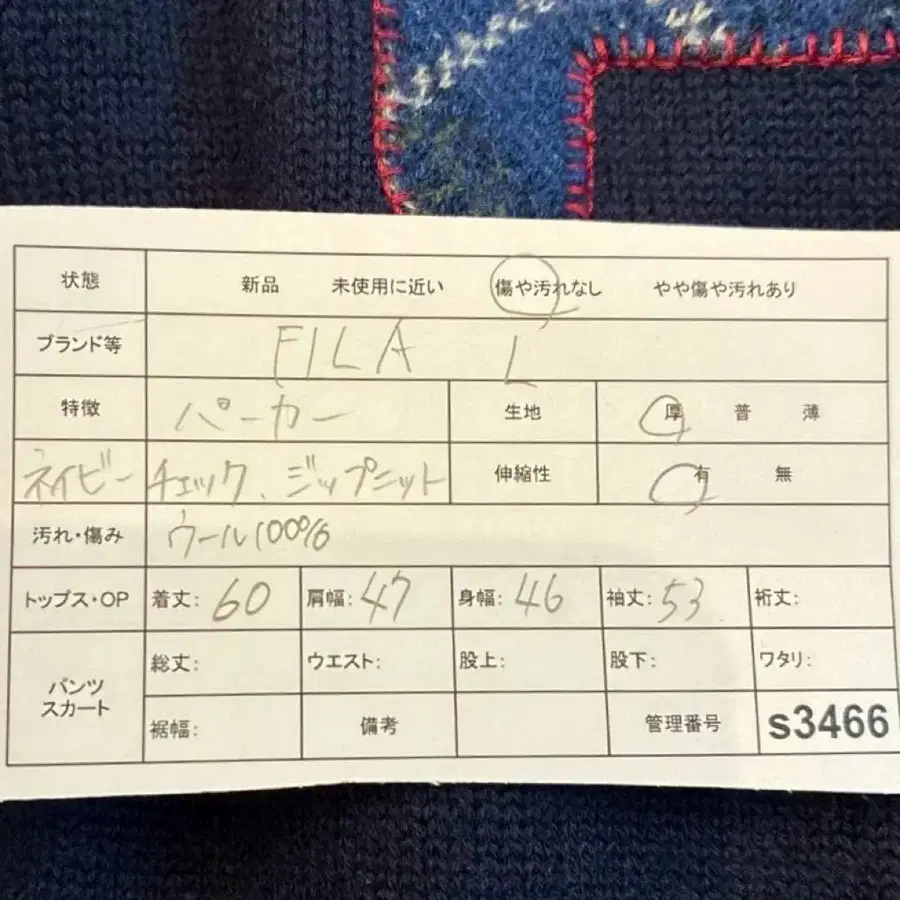 状態 新品 未使用に近い 傷や汚れなし やや傷や汚れあり
ブランド等 FILA L
特徴 パーカー 生地 厚 普 薄
ネイビー チェック、ジップニット 伸縮性 有 無
汚れ・傷み ウール100%
トップス・OP 着丈: 60 肩幅: 47 身幅: 46 袖丈: 53 裄丈:
パンツ スカート 総丈: ウエスト: 股上: 股下: ワタリ:
裾幅: 備考 管理番号 s3466